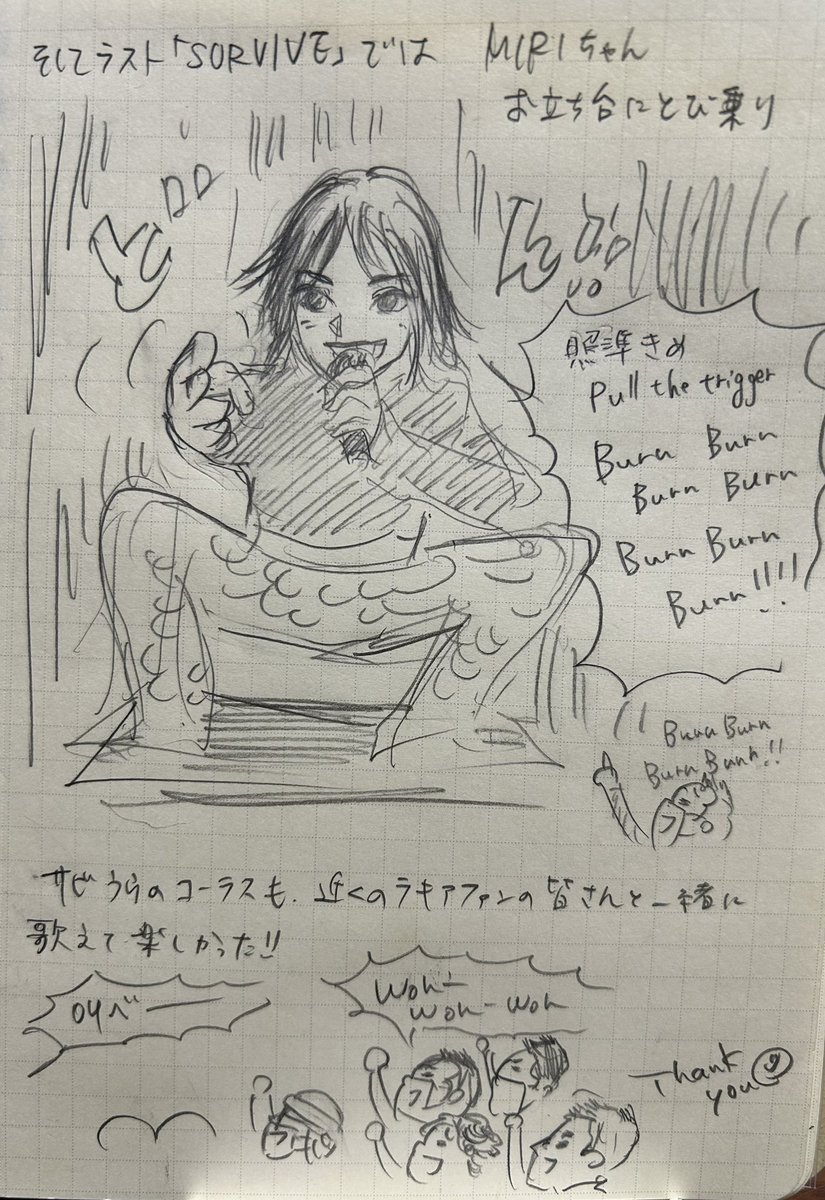 そしてラスト「SORVIVE」では MIRIちゃん
お立ち台にとび乗り
照準きめ
Pull the trigger
Burn Burn
Burn Burn
Burn Burn
Burn!!!!
Burn Burn
Burn Burn!!
サビうらのコーラスも、近くのラキアファンの皆さんと一緒に
歌えて楽しかった!!
Woh-
Woh-Woh
Thank
you